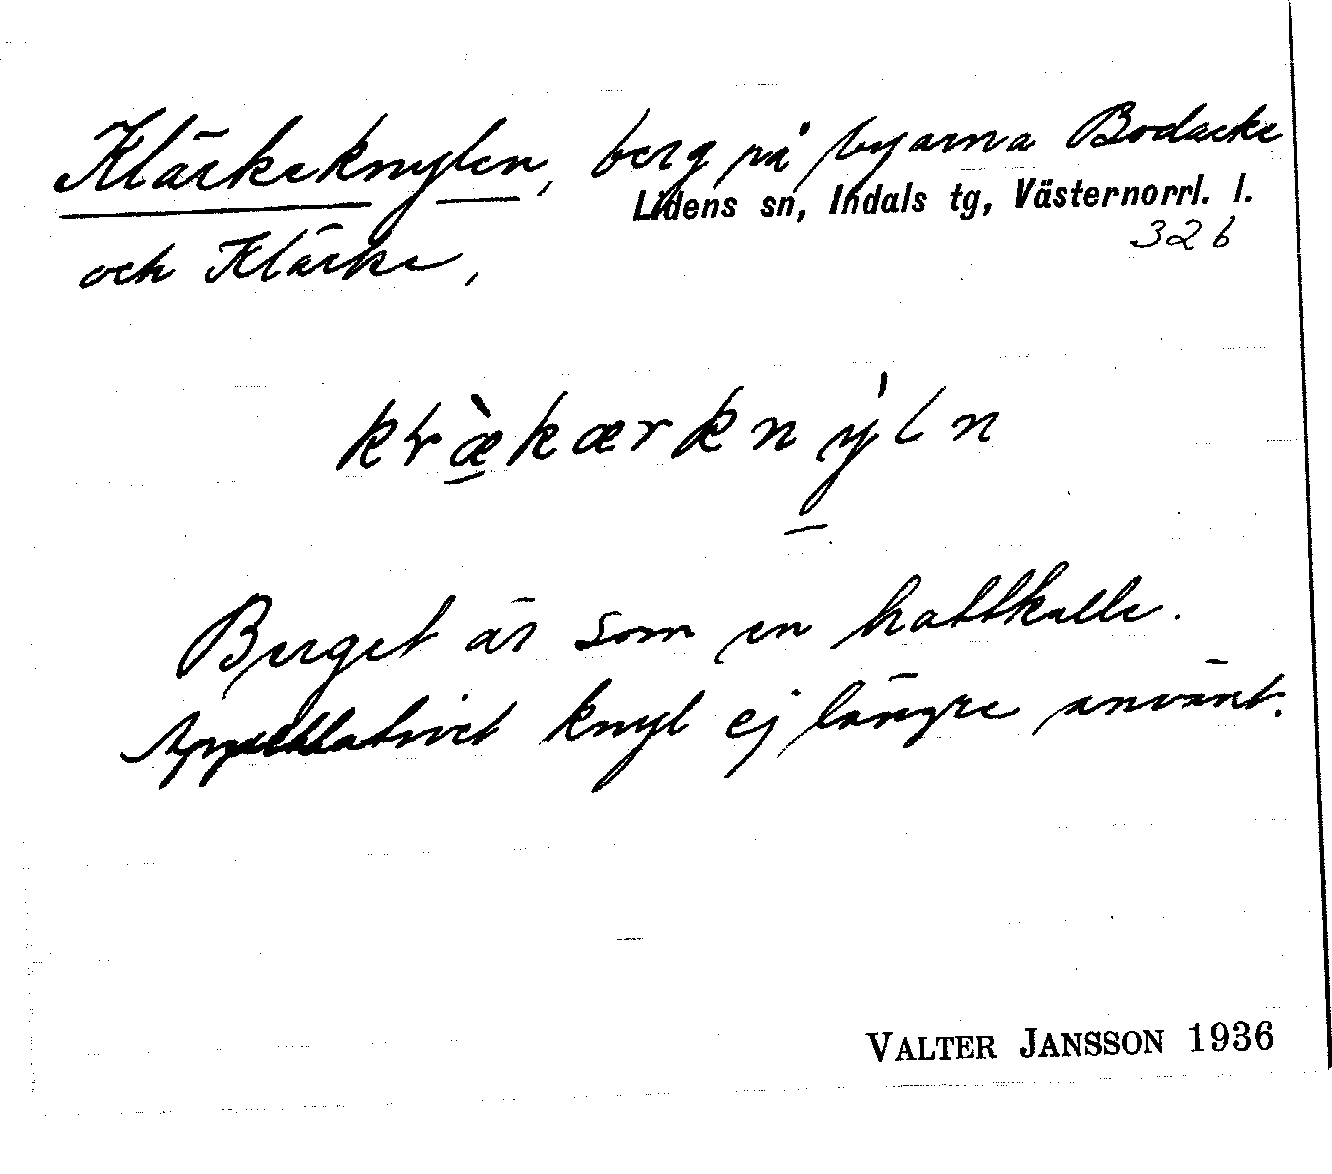 Kläckeknylen, berg på byarna Bodacke
Lidens sn, Indals tg, Västernorrl. l.
326
och Kläcke,
klæ̀kærknỳln
Berget är som en hattkulle.
Appellativet knyl ej längre använt.
VALTER JANSSON 1936